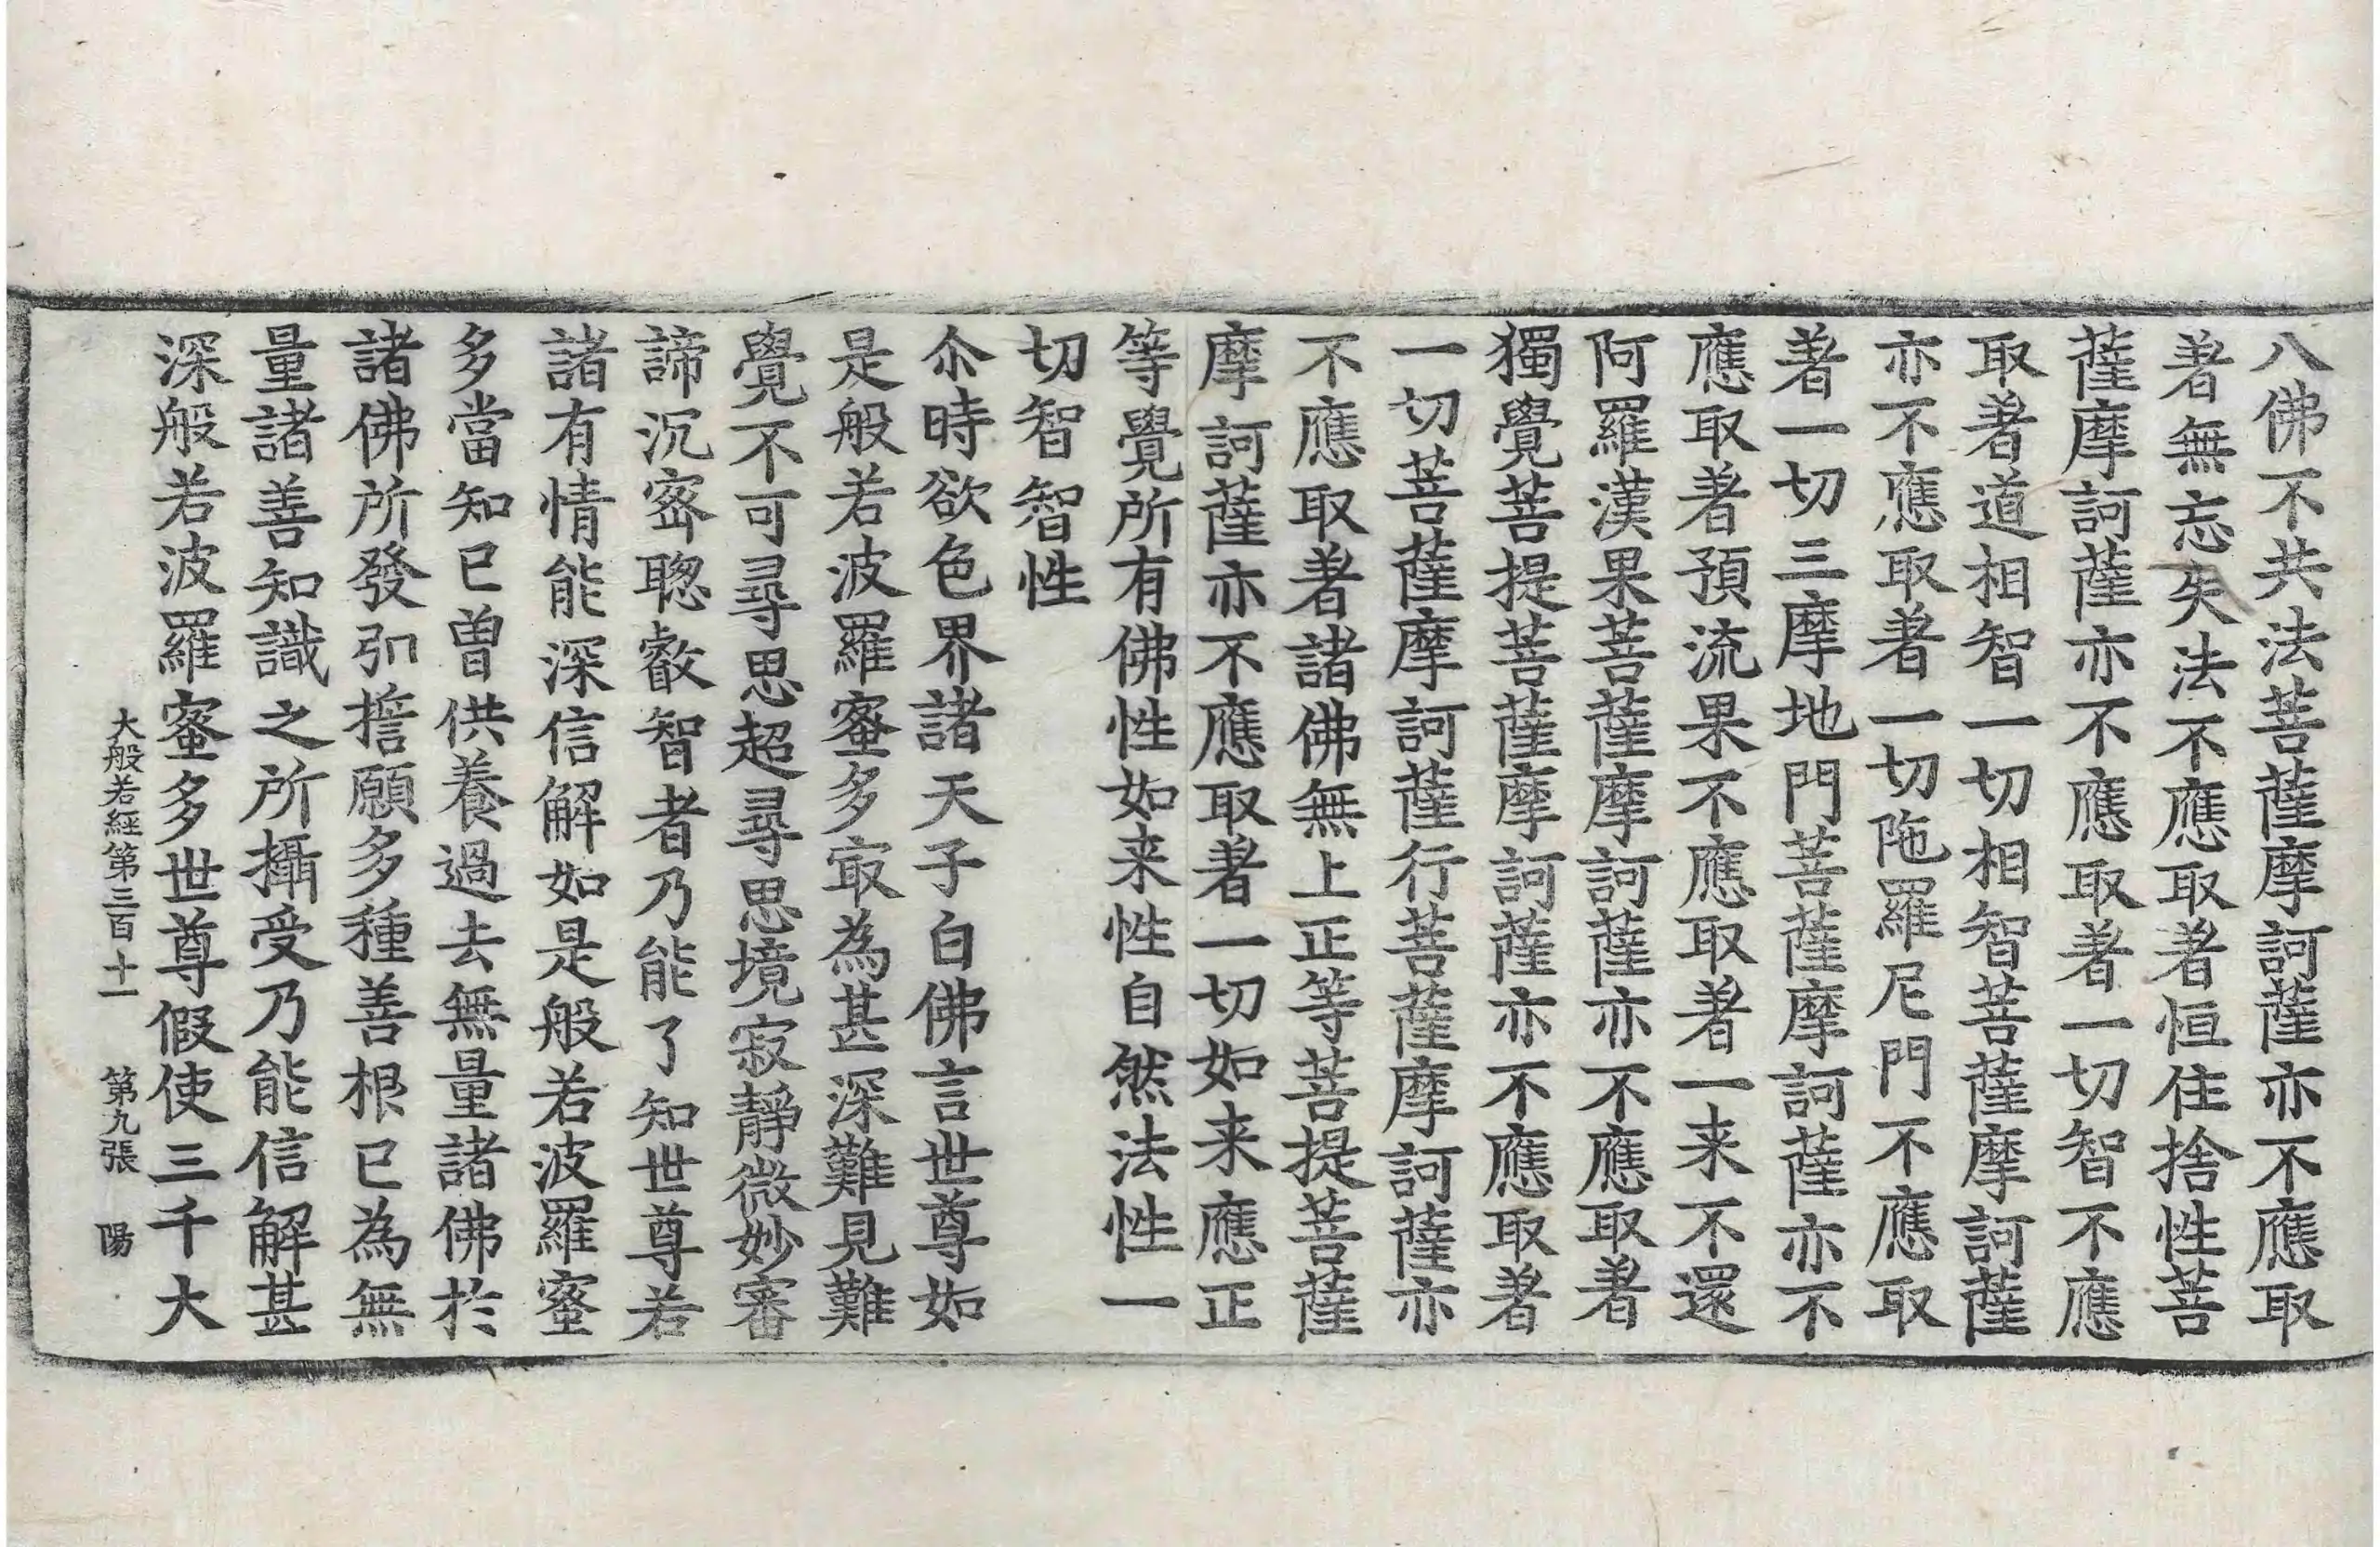 八佛不共法菩薩摩訶薩亦不應取
著無忘失法不應取著恒住捨性菩
薩摩訶薩亦不應取著一切智不應
取著道相智一切相智菩薩摩訶薩
亦不應取著一切陁羅尼門不應取
著一切三摩地門菩薩摩訶薩亦不
應取著預流果不應取著一来不還
阿羅漢果菩薩摩訶薩亦不應取著
獨覺菩提菩薩摩訶薩亦不應取著
一切菩薩摩訶薩行菩薩摩訶薩亦
不應取著諸佛無上正等菩提菩薩
摩訶薩亦不應取著一切如来應正
等覺所有佛性如来性自然法性一
切智智性
尒時欲色界諸天子白佛言世尊如
是般若波羅蜜多㝡為甚深難見難
覺不可尋思超尋思境寂靜微妙審
諦沉密聰叡智者乃能了知世尊若
諸有情能深信解如是般若波羅蜜
多當知已曽供養過去無量諸佛於
諸佛所發弘擔願多種善根已為無
量諸善知識之所攝受乃能信解甚
深般若波羅蜜多世尊假使三千大
大般若經第三百十一 第九張 陽